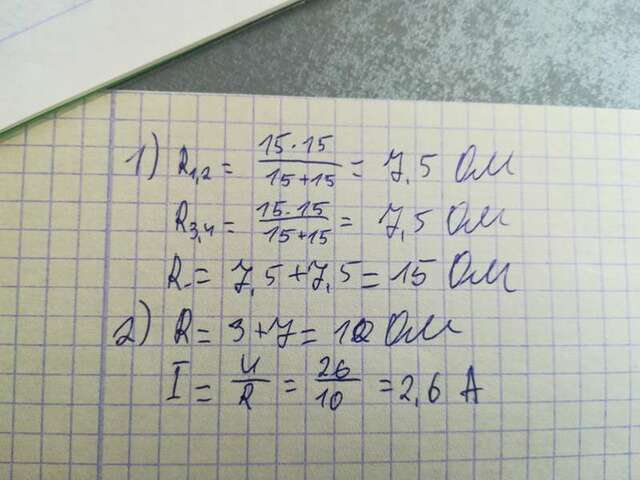 1) R1,2 = 15·15 / 15+15 = 7,5 Ом
R3,4 = 15·15 / 15+15 = 7,5 Ом
R = 7,5+7,5 = 15 Ом
2) R = 3+7 = 10 Ом
I = U / R = 26 / 10 = 2,6 А